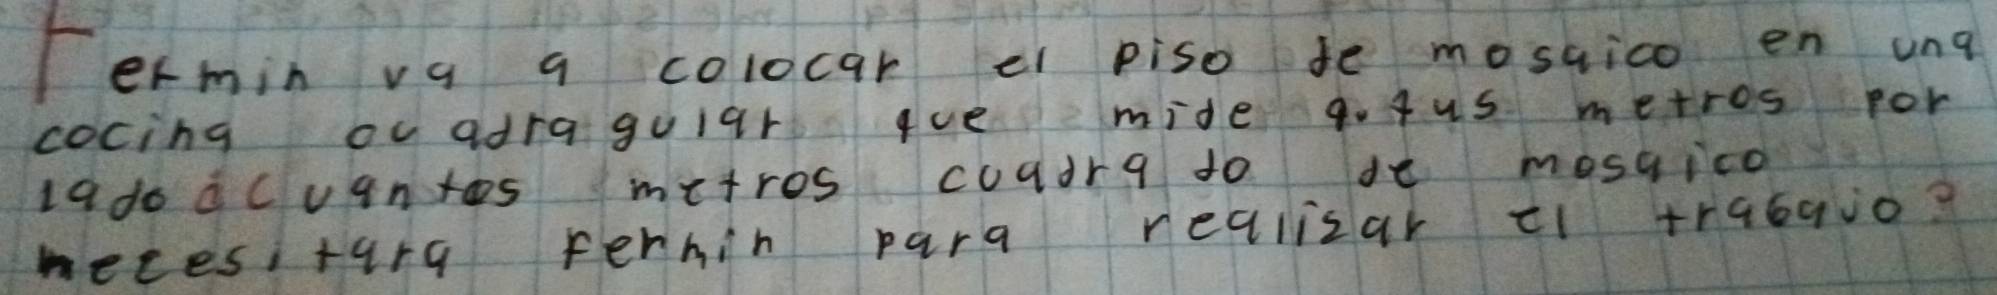 Fermin va a colocar el piso de mosaico en una
cocina cuadragular que mide metros por
lado ¿Cuantos metros cuadrado de mosaico
necesitara Fermin para realisar el trabajo?